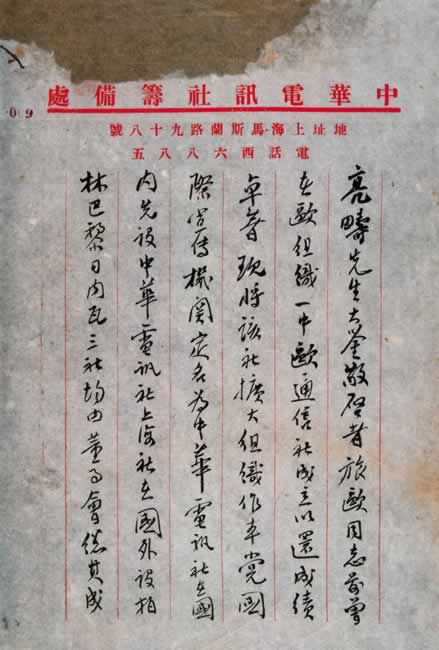 中華電訊社籌備處
地址上海·馬斯蘭路九十八號
電話西六八八五
09
亮疇先生大鋻敬啓者旅歐同志前曾
在歐組織一中歐通信社成立以還成績
卓著現將該社擴大組織作本黨國
際宣傳機関定名為中華電訊社在國
内先設中華電訊社上海社在國外設柏
林巴黎日内瓦三社均由董事會總其成